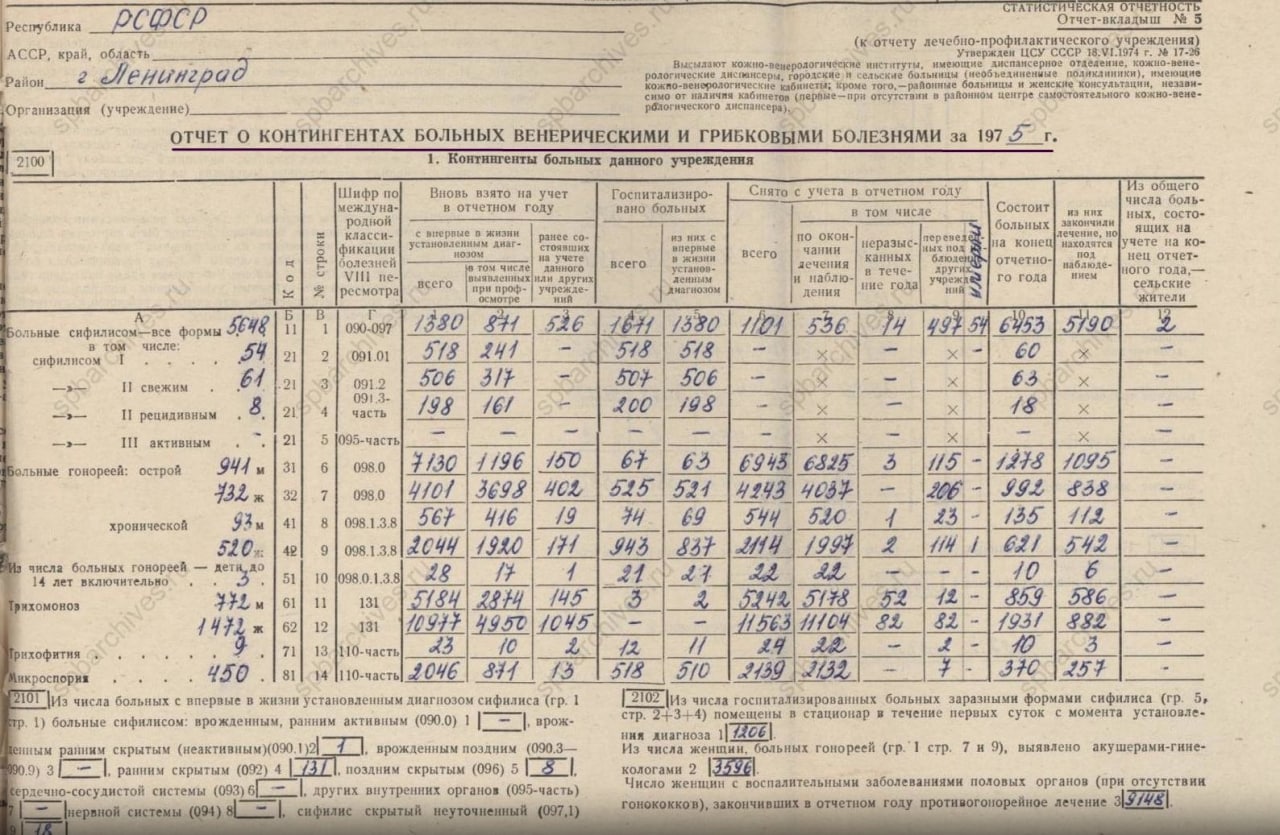 СТАТИСТИЧЕСКАЯ ОТЧЕТНОСТЬ
Отчет-вкладыш № 5
(к отчету лечебно-профилактического учреждения)
Утвержден ЦСУ СССР 18.VI.1974 г. № 17-26
Высылают кожно-венерологические институты, имеющие диспансерное отделение, кожно-вене-
рологические диспансеры, городские и сельские больницы (необъединенные поликлиники), имеющие
кожно-венерологические кабинеты; кроме того,—районные больницы и женские консультации, незави-
симо от наличия кабинетов (первые—при отсутствии в районном центре самостоятельного кожно-вене-
рологического диспансера).
Республика РСФСР
АССР, край, область
Район г Ленинград
Организация (учреждение)
ОТЧЕТ О КОНТИНГЕНТАХ БОЛЬНЫХ ВЕНЕРИЧЕСКИМИ И ГРИБКОВЫМИ БОЛЕЗНЯМИ за 1975 г.
2100
1. Контингенты больных данного учреждения
Код
№ строки
Шифр по междуна-родной класси-фикации болезней VIII пе-ресмотра
Вновь взято на учет в отчетном году
с впервые в жизни установленным диаг-нозом
всего
в том числе выявленных при проф-осмотре
ранее со-стоявших на учете данного или других учрежде-ний
Госпитализиро-вано больных
всего
из них с впервые в жизни установ-ленным диагнозом
Снято с учета в отчетном году
всего
в том числе
по окон-чании лечения и наблю-дения
неразыс-канных в тече-ние года
умерли
Состоит больных на конец отчетно-го года
из них закончили лечение, но находятся под наблюде-нием
Из общего числа боль-ных, состо-ящих на учете на ко-нец отчет-ного года,— сельские жители
А Б В Г 1 2 3 4 5 6 7 8 9 10 11 12
Больные сифилисом—все формы 5648 11 1 090-097 1380 871 526 1671 1380 1101 536 14 497 54 6453 5190 2
в том числе:
сифилисом I 54 21 2 091.01 518 241 — 518 518 — × — × — 60 × —
—»— II свежим 61 21 3 091.2 506 317 — 507 506 — × — × 63 × —
—»— II рецидивным 8 21 4 091.3-часть 198 161 — 200 198 — × — × 18 × —
—»— III активным - 21 5 095-часть — — — — — — × — × — × —
Больные гонореей: острой 941 м 31 6 098.0 7130 1196 150 67 63 6943 6825 3 115 - 1278 1095 —
732 ж 32 7 098.0 4101 3698 402 525 521 4243 4037 — 206 - 992 838 —
хронической 93 м 41 8 098.1.3.8 567 416 19 74 69 544 520 1 23 - 135 112 —
520 ж: 42 9 098.1.3.8 2044 1920 171 943 837 2114 1997 2 114 1 621 542 —
Из числа больных гонореей — дети до
14 лет включительно 3 51 10 098.0.1.3.8 28 17 1 21 21 22 22 - - - 10 6 —
Трихомоноз 772 м 61 11 131 5184 2874 145 3 2 5242 5178 52 12 - 859 586 —
1472 ж 62 12 131 10977 4950 1045 — — 11563 11104 82 82 - 1931 882 —
Трихофития 9 71 13 110-часть 23 10 2 12 11 24 22 — 2 - 10 3 —
Микроспория 450 81 14 110-часть 2046 871 13 518 510 2139 2132 — 7 - 370 257 —
2101 Из числа больных с впервые в жизни установленным диагнозом сифилиса (гр. 1
стр. 1) больные сифилисом: врожденным, ранним активным (090.0) 1 —, врож-
денным ранним скрытым (неактивным)(090.1)2 1, врожденным поздним (090.3—
090.9) 3 —, ранним скрытым (092) 4 131, поздним скрытым (096) 5 8,
сердечно-сосудистой системы (093) 6 —, других внутренних органов (095-часть)
7 — нервной системы (094) 8 —, сифилис скрытый неуточненный (097,1)
9 18
2102 Из числа госпитализированных больных заразными формами сифилиса (гр. 5,
стр. 2+3+4) помещены в стационар в течение первых суток с момента установле-
ния диагноза 1 1206.
Из числа женщин, больных гонореей (гр. 1 стр. 7 и 9), выявлено акушерами-гине-
кологами 2 3596.
Число женщин с воспалительными заболеваниями половых органов (при отсутствии
гонококков), закончивших в отчетном году противогонорейное лечение 3 9148.
spbarchives.ru